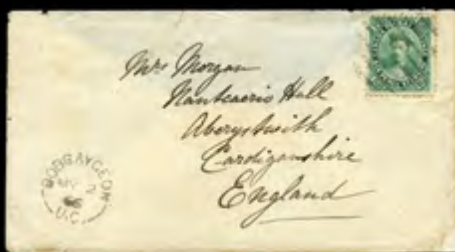 Mrs Morgan
Nanteaeris Hall
Aberystwith
Cardiganshire
England
BOBCAYGEON
MY 2
66
U.C.